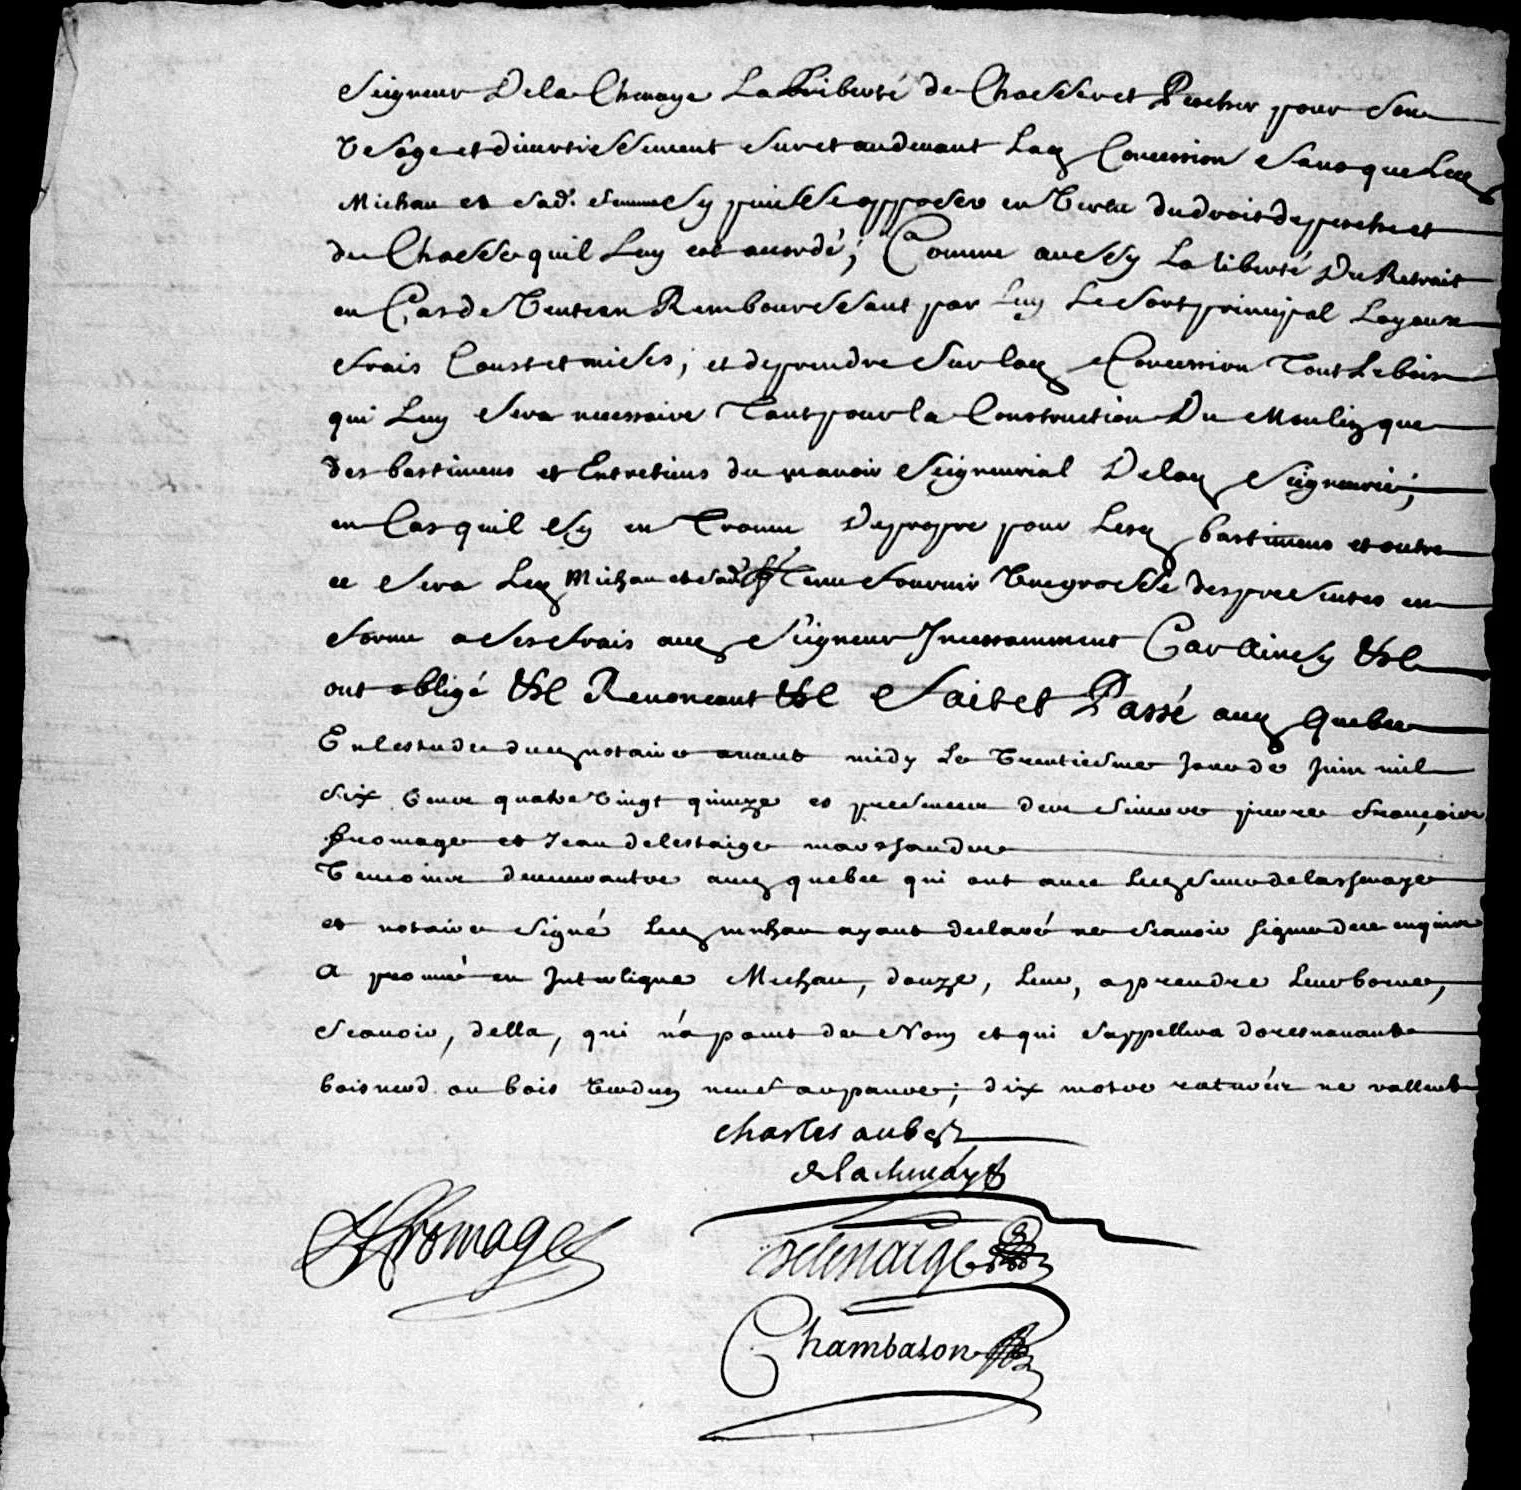 Seigneur Dela Chenaye La Liberté de Chasser et Pescher pour Son
Usage et divertissement sur et audevant Lad Concession sans que Led
Michau et sad. femme sy puisse opposer en Vertu du droit de pesche et
de Chasse quil Luy est accordé; Comme aussy La liberté Du Retrait
en Cas de Vente en Remboursant par Luy Le Sort principal Loyaux
frais Coust et mises; et de prendre sur lad Concession Tout Le bois
qui Luy sera necessaire Tant pour la Construction Du Moulin que
des bastimens et Entretiens du manoir Seigneurial Delad Seigneurie;
en Cas quil sy en Trouve De propre pour Lesd bastimens et outre
ce sera Led Michau et sad Tenu fournir Une grosse des presentes en
forme a ses frais aud Seigneur Incessamment Car Ainsy &c
ont obligé &c Renonceant &c Fait et Passé aud Quebec
En lestude dud notaire avant midy Le Trentiesme Jour de Juin mil
Six Cens quatre Vingt quinze es presences des Sieurs françois
fromage et Jean delestaige marchandes
Temoins demeurantes aud quebec qui ont avec led sieur delachenaye
et notaire signé led michau ayant declaré ne scavoir signer de ce enquis
a en Interligne Michau, douze, leur, a prendre leur borne,
scavoir, della, qui n'a point de Nom et qui sappellera doresnavant
bois ou bois dix motes raturées ne vallent
charles aubert
delachenaye
fromage
delestaige
Chambalon